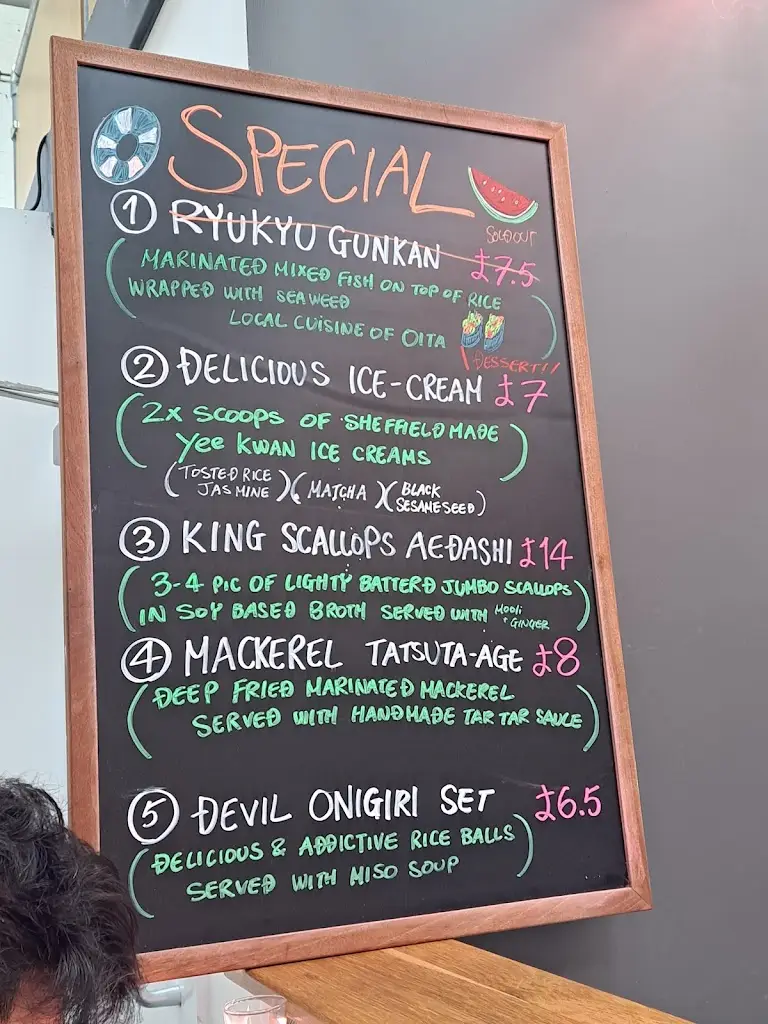 SPECIAL
① RYUKYU GUNKAN £7.5
SOLD OUT
(MARINATED MIXED FISH ON TOP OF RICE
WRAPPED WITH SEAWEED
LOCAL CUISINE OF OITA)
\DESSERT!/
② DELICIOUS ICE-CREAM £7
(2X SCOOPS OF SHEFFIELD MADE
Yee KWAN ICE CREAMS)
(TOSTED RICE JASMINE) (MATCHA) (BLACK SESAME SEED)
③ KING SCALLOPS AEDASHI £14
(3-4 PIC OF LIGHTY BATTERD JUMBO SCALLOPS
IN SOY BASED BROTH SERVED WITH MOOLI + GINGER)
④ MACKEREL TATSUTA-AGE £8
(DEEP FRIED MARINATED MACKEREL
SERVED WITH HANDMADE TAR TAR SAUCE)
⑤ DEVIL ONIGIRI SET £6.5
(DELICIOUS & ADDICTIVE RICE BALLS
SERVED WITH MISO SOUP)